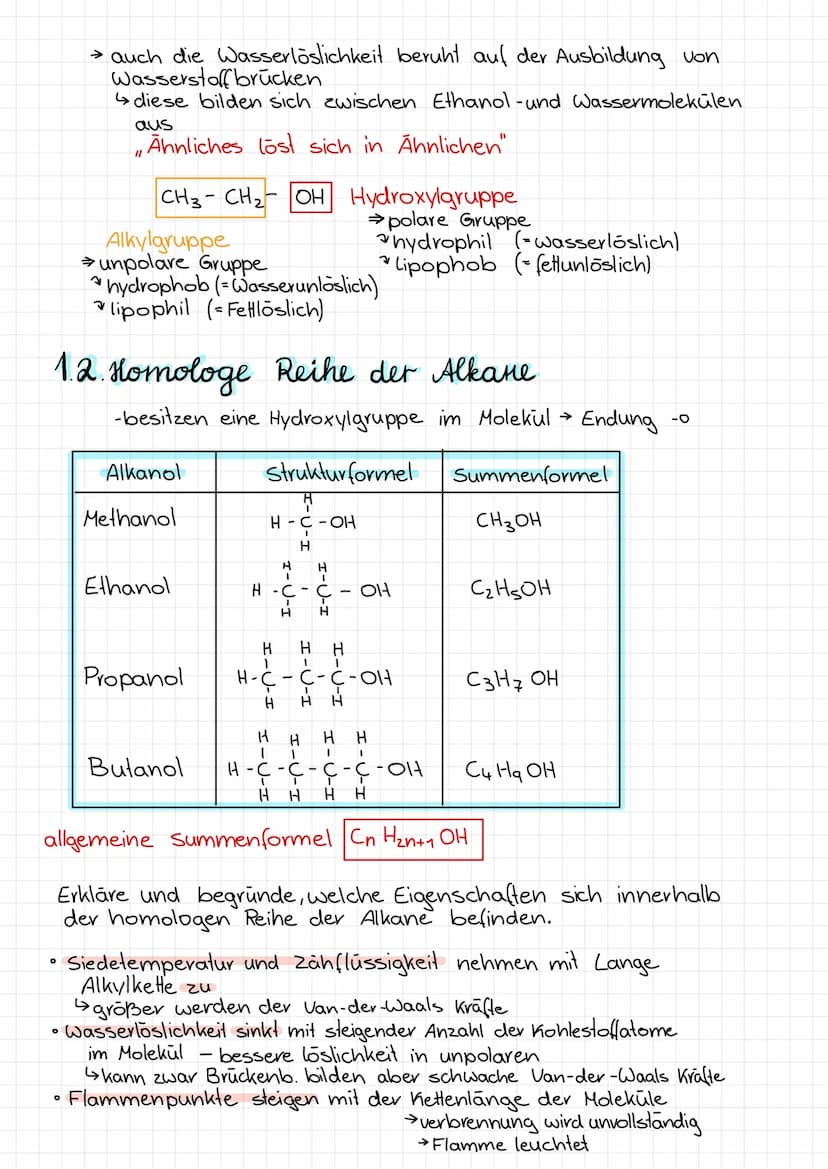 → auch die Wasserlöslichkeit beruht auf der Ausbildung von
Wasserstoffbrücken
↳ diese bilden sich zwischen Ethanol-und Wassermolekülen
aus
„Ähnliches löst sich in Ähnlichen"
CH₃ - CH₂ - OH Hydroxylgruppe
⇒ polare Gruppe
↷ hydrophil (=wasserlöslich)
↷ Lipophob (=fettunlöslich)
Alkylgruppe
⇒ unpolare Gruppe
↷ hydrophob (=Wasserunlöslich)
↷ lipophil (=Fettlöslich)
1.2. Homologe Reihe der Alkane
-besitzen eine Hydroxylgruppe im Molekül → Endung -o
Alkanol Strukturformel Summenformel
H
Methanol H - C - OH CH₃OH
H
H H
Ethanol H - C - C - OH C₂H₅OH
H H
H H H
Propanol H - C - C - C - OH C₃H₇ OH
H H H
H H H H
Butanol H - C - C - C - C - OH C₄H₉OH
H H H H
allgemeine Summenformel Cn H2n+1 OH
Erkläre und begründe, welche Eigenschaften sich innerhalb
der homologen Reihe der Alkane befinden.
• Siedetemperatur und Zähflüssigkeit nehmen mit Lange
Alkylkette zu
↳ größer werden der Van-der-Waals Kräfte
• Wasserlöslichkeit sinkt mit steigender Anzahl der Kohlestoffatome
im Molekül – bessere löslichkeit in unpolaren
↳ kann zwar Brückenb. bilden aber schwache Van-der-Waals Kräfte
• Flammenpunkte steigen mit der Kettenlänge der Moleküle
→ verbrennung wird unvollständig
→ Flamme leuchtet